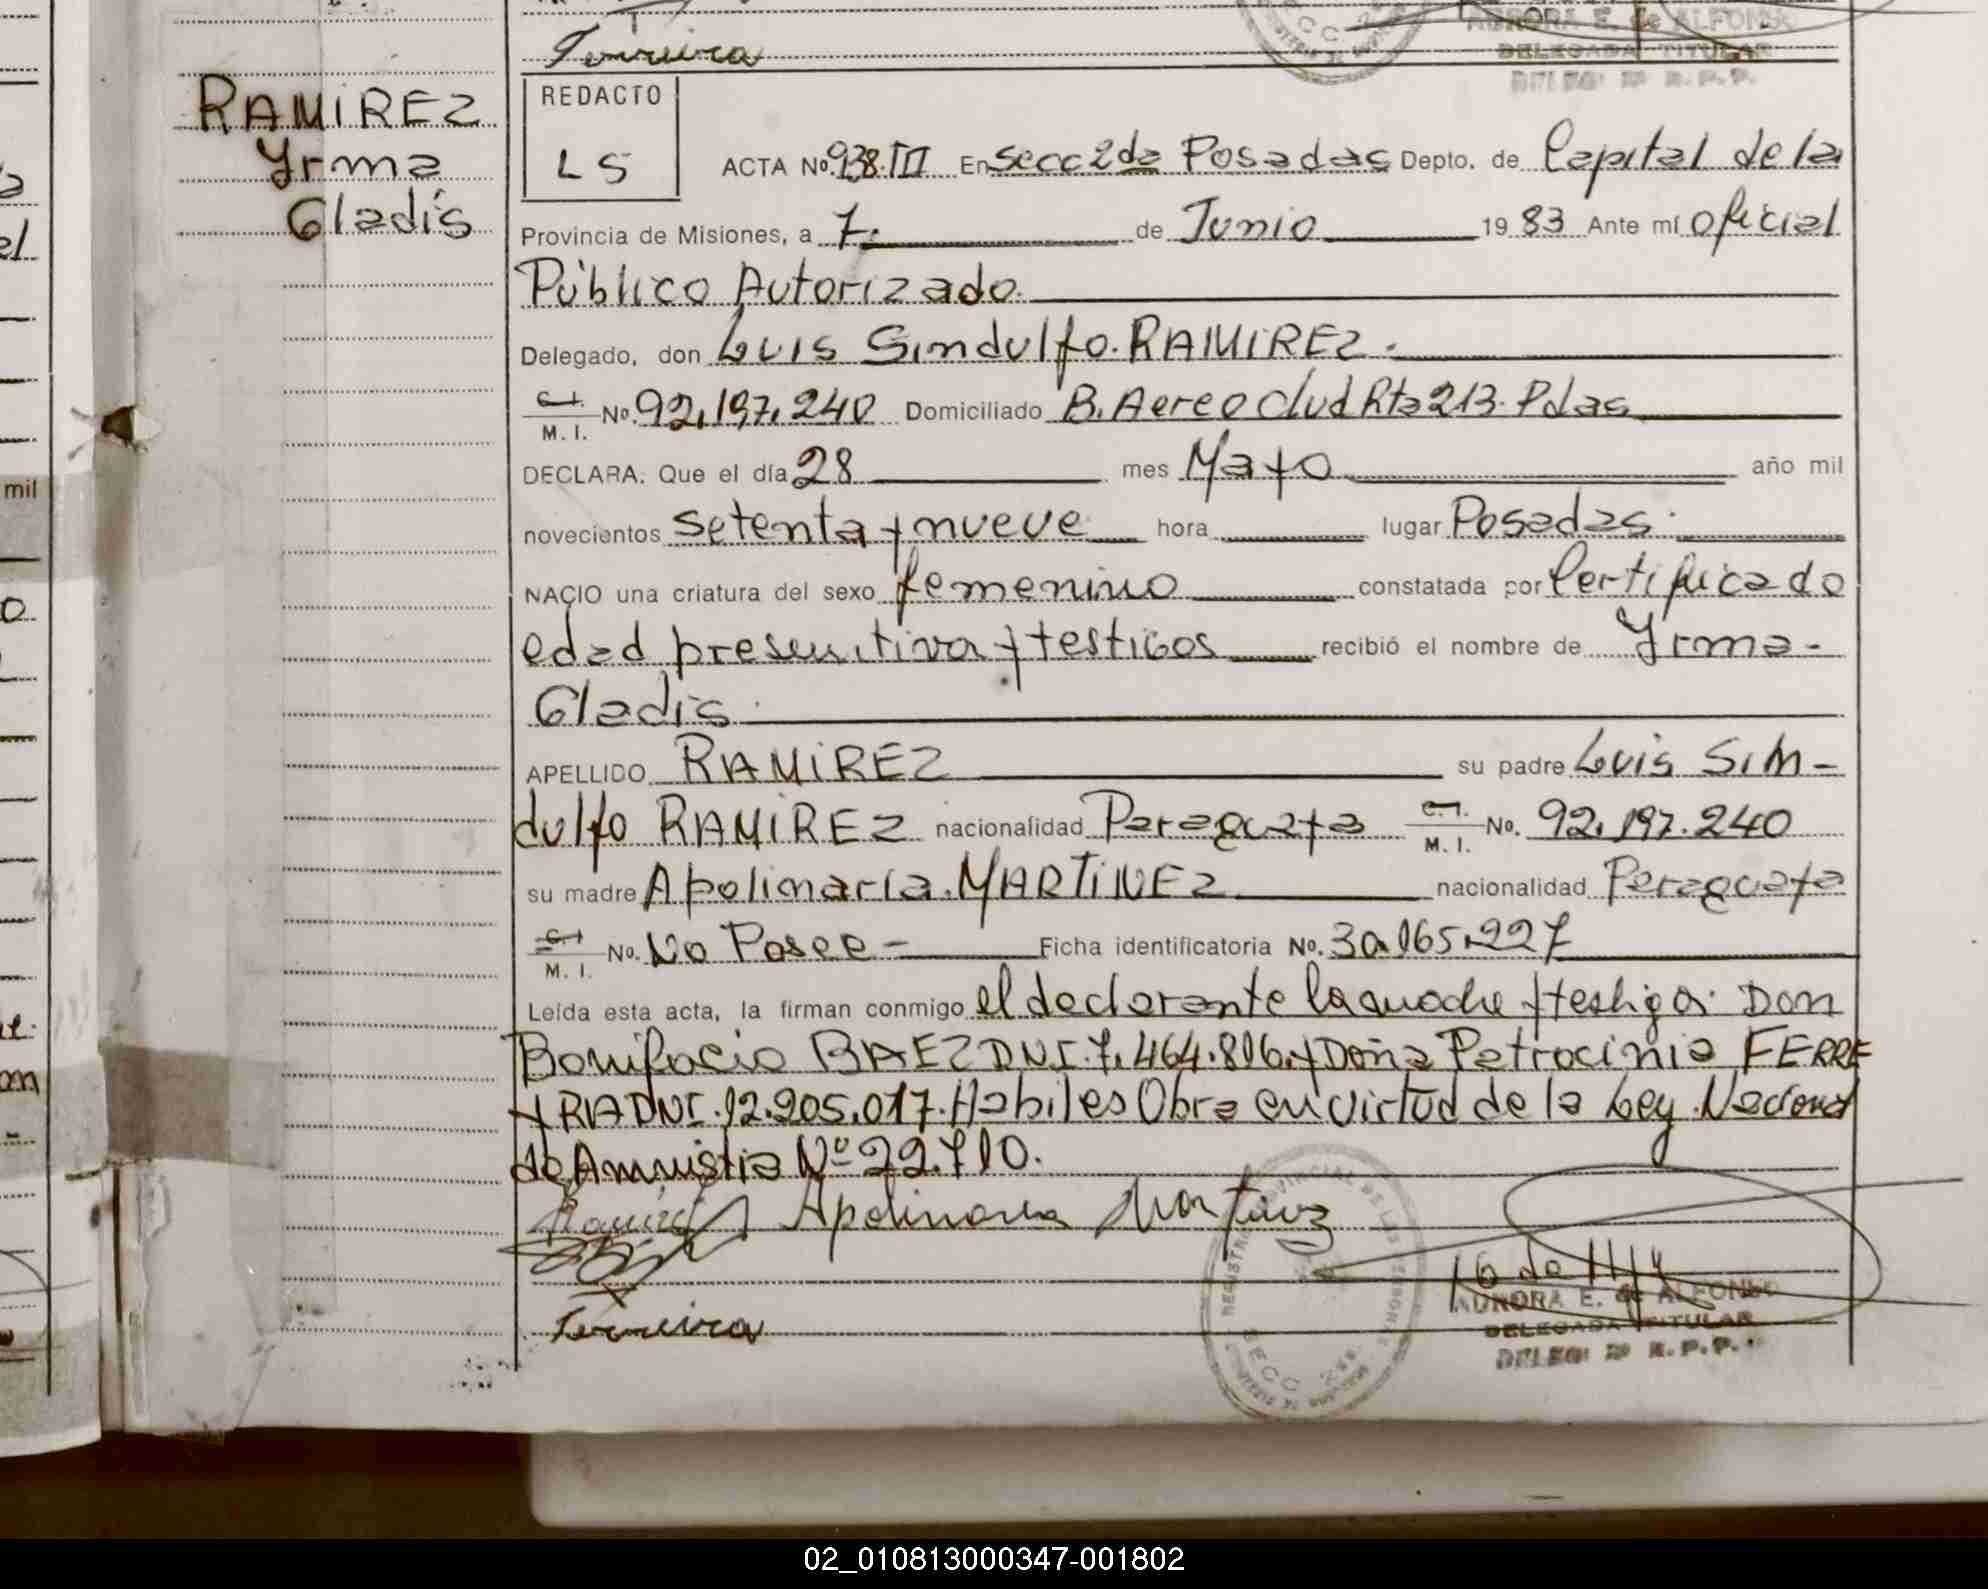 Ferreira
AURORA E. de ALFONSO
DELEGADA TITULAR
RAMIREZ
Yrma
Gladis
REDACTO
LS
ACTA No. 938.III En Secc 2da Posadas Depto. de Capital de la
Provincia de Misiones, a 7. de Junio 1983 Ante mí Oficial
Público Autorizado.
Delegado, don Luis Sindulfo. RAMIREZ.
C.I.
M. I. No. 92.197.240 Domiciliado B. Aereo Clud Rta 213. Pdas
DECLARA: Que el día 28 mes Mayo año mil
novecientos setenta y nueve hora lugar Posadas.
NACIO una criatura del sexo femenino constatada por Certificado
edad presuntiva y testigos recibió el nombre de Yrma-
Gladis.
APELLIDO RAMIREZ su padre Luis Sin-
dulfo RAMIREZ nacionalidad Paraguaya C.I. M. I. No. 92.197.240
su madre Apolinaria. MARTINEZ nacionalidad Paraguaya
C.I.
M. I. No. No Posee - Ficha identificatoria No. 30.165.227
Leída esta acta, la firman conmigo el declarante la madre y testigos: Don
Bonifacio BAEZ DNI. 7.464.816. y Doña Patrocinia FERRE
RIA DNI. 12.905.017. Habiles Obra en virtud de la Ley. Nacional
de Amnistia Nº 22.710.
Ramirez Apolinaria Martinez
Ferreira
REGISTRO PROVINCIAL DE LAS PERSONAS
SECC 2da.
AURORA E. de ALFONSO
DELEGADA TITULAR
DELEG. 2ª R.P.P.
mil
02_010813000347-001802